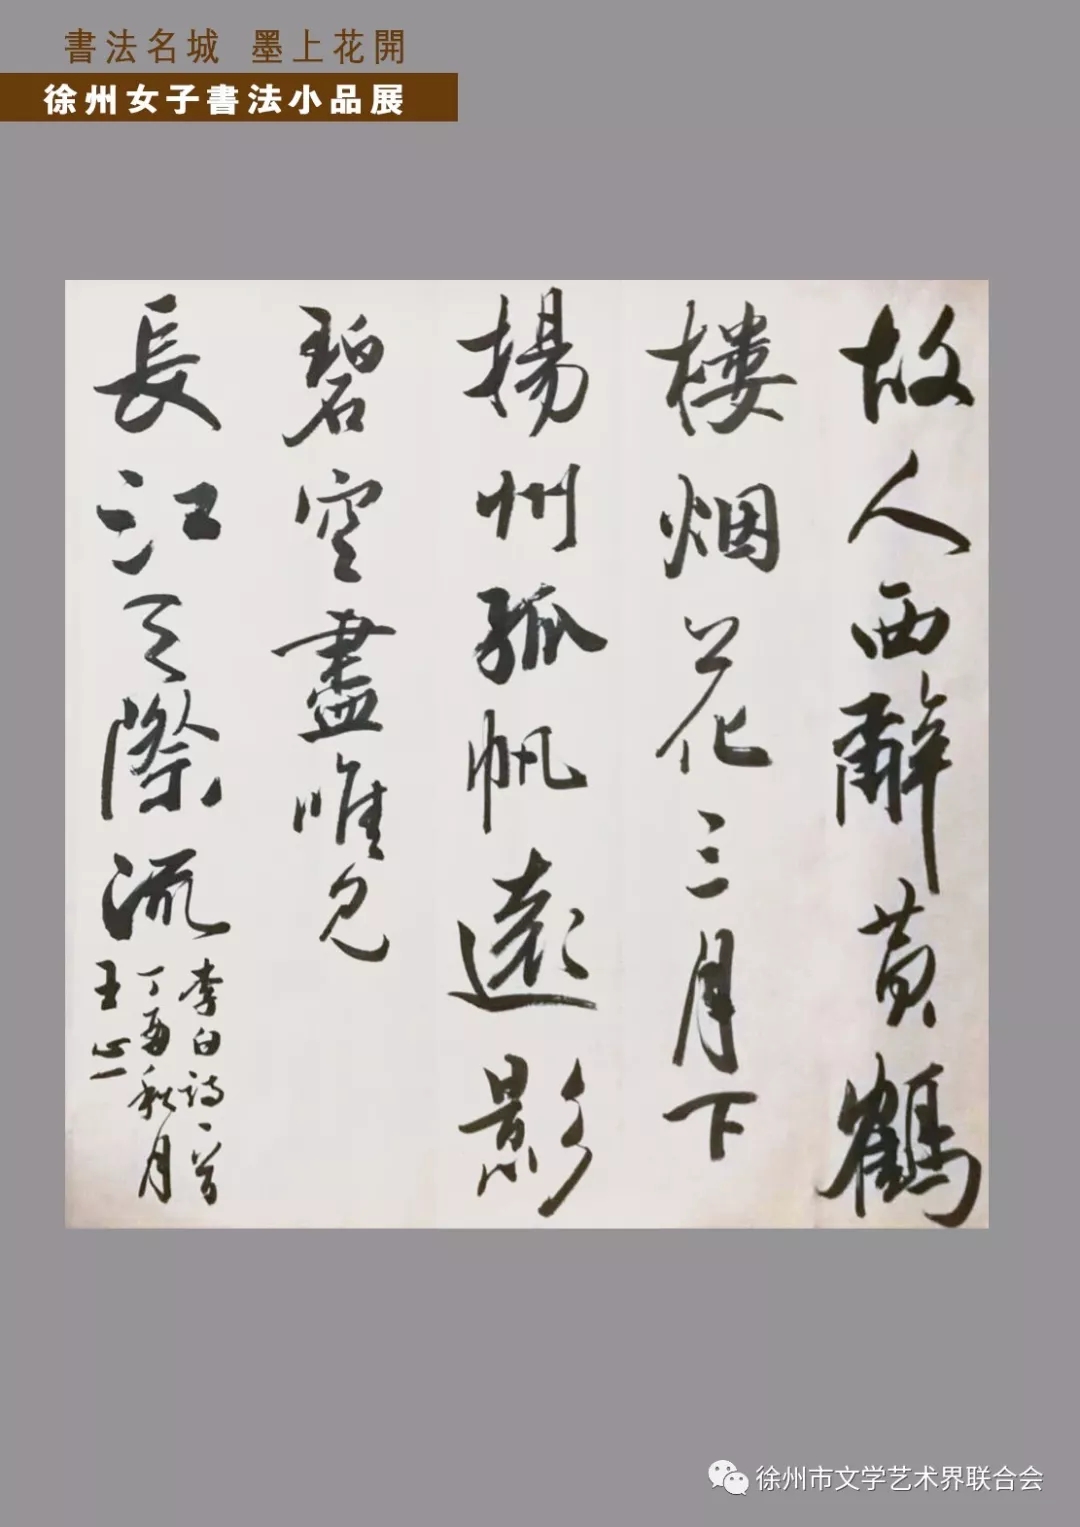 書法名城 墨上花開
徐州女子書法小品展
故人西辭黄鶴
楼烟花三月下
揚州孤帆遠影
碧空盡唯見
長江天際流
李白詩一首
丁酉秋月
王心一
徐州市文学艺术界联合会